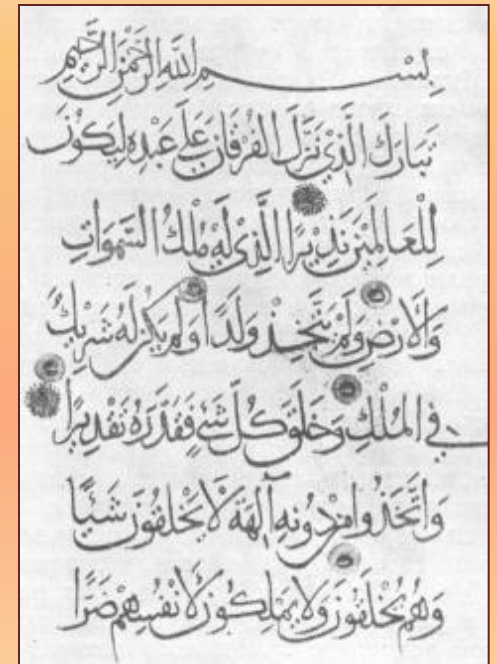 بِسْمِ اللَّهِ الرَّحْمَنِ الرَّحِيمِ
تَبَارَكَ الَّذِي نَزَّلَ الفُرْقَانَ عَلَى عَبْدِهِ لِيَكُونَ
لِلْعَالَمِينَ نَذِيرًا الَّذِي لَهُ مُلْكُ السَّمَوَاتِ
وَالْأَرْضِ وَلَمْ يَتَّخِذْ وَلَدًا وَلَمْ يَكُنْ لَهُ شَرِيكٌ
فِي المُلْكِ وَخَلَقَ كُلَّ شَيْءٍ فَقَدَّرَهُ تَقْدِيرًا
وَاتَّخَذُوا مِنْ دُونِهِ آلِهَةً لَا يَخْلُقُونَ شَيْئًا
وَهُمْ يُخْلَقُونَ وَلَا يَمْلِكُونَ لِأَنْفُسِهِمْ ضَرًّا